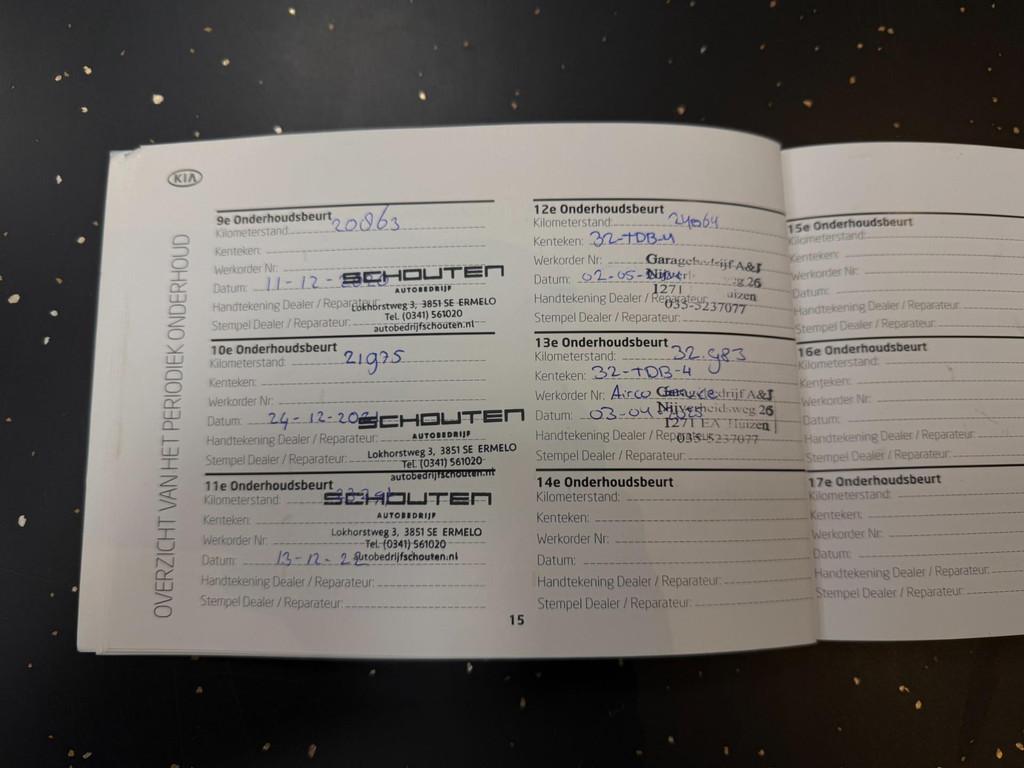 KIA
OVERZICHT VAN HET PERIODIEK ONDERHOUD
9e Onderhoudsbeurt
Kilometerstand: 20863
Kenteken:
Werkorder Nr:
Datum: 11-12-
SCHOUTEN
AUTOBEDRIJF
Lokhorstweg 3, 3851 SE ERMELO
Tel. (0341) 561020
autobedrijfschouten.nl
Handtekening Dealer / Reparateur:
Stempel Dealer / Reparateur:
10e Onderhoudsbeurt
Kilometerstand: 21975
Kenteken:
Werkorder Nr:
Datum: 24-12-
SCHOUTEN
AUTOBEDRIJF
Lokhorstweg 3, 3851 SE ERMELO
Tel. (0341) 561020
autobedrijfschouten.nl
Handtekening Dealer / Reparateur:
Stempel Dealer / Reparateur:
11e Onderhoudsbeurt
Kilometerstand:
SCHOUTEN
AUTOBEDRIJF
Lokhorstweg 3, 3851 SE ERMELO
Tel. (0341) 561020
autobedrijfschouten.nl
Kenteken:
Werkorder Nr:
Datum: 13-12-22
Handtekening Dealer / Reparateur:
Stempel Dealer / Reparateur:
12e Onderhoudsbeurt
Kilometerstand: 24064
Kenteken: 32-TDB-4
Werkorder Nr:
Datum: 02-05-
Garagebedrijf A&J
1271 Huizen
035-5237077
Handtekening Dealer / Reparateur:
Stempel Dealer / Reparateur:
13e Onderhoudsbeurt
Kilometerstand: 32.983
Kenteken: 32-TDB-4
Werkorder Nr: Airco
Datum: 03-04-2025
Garagebedrijf A&J
Nijverheidsweg 26
1271 EA Huizen
035-5237077
Handtekening Dealer / Reparateur:
Stempel Dealer / Reparateur:
14e Onderhoudsbeurt
Kilometerstand:
Kenteken:
Werkorder Nr:
Datum:
Handtekening Dealer / Reparateur:
Stempel Dealer / Reparateur:
15
15e Onderhoudsbeurt
Kilometerstand:
Kenteken:
Werkorder Nr:
Datum:
Handtekening Dealer / Reparateur:
Stempel Dealer / Reparateur:
16e Onderhoudsbeurt
Kilometerstand:
Kenteken:
Werkorder Nr:
Datum:
Handtekening Dealer / Reparateur:
Stempel Dealer / Reparateur:
17e Onderhoudsbeurt
Kilometerstand:
Kenteken:
Werkorder Nr:
Datum:
Handtekening Dealer / Reparateur:
Stempel Dealer / Reparateur: